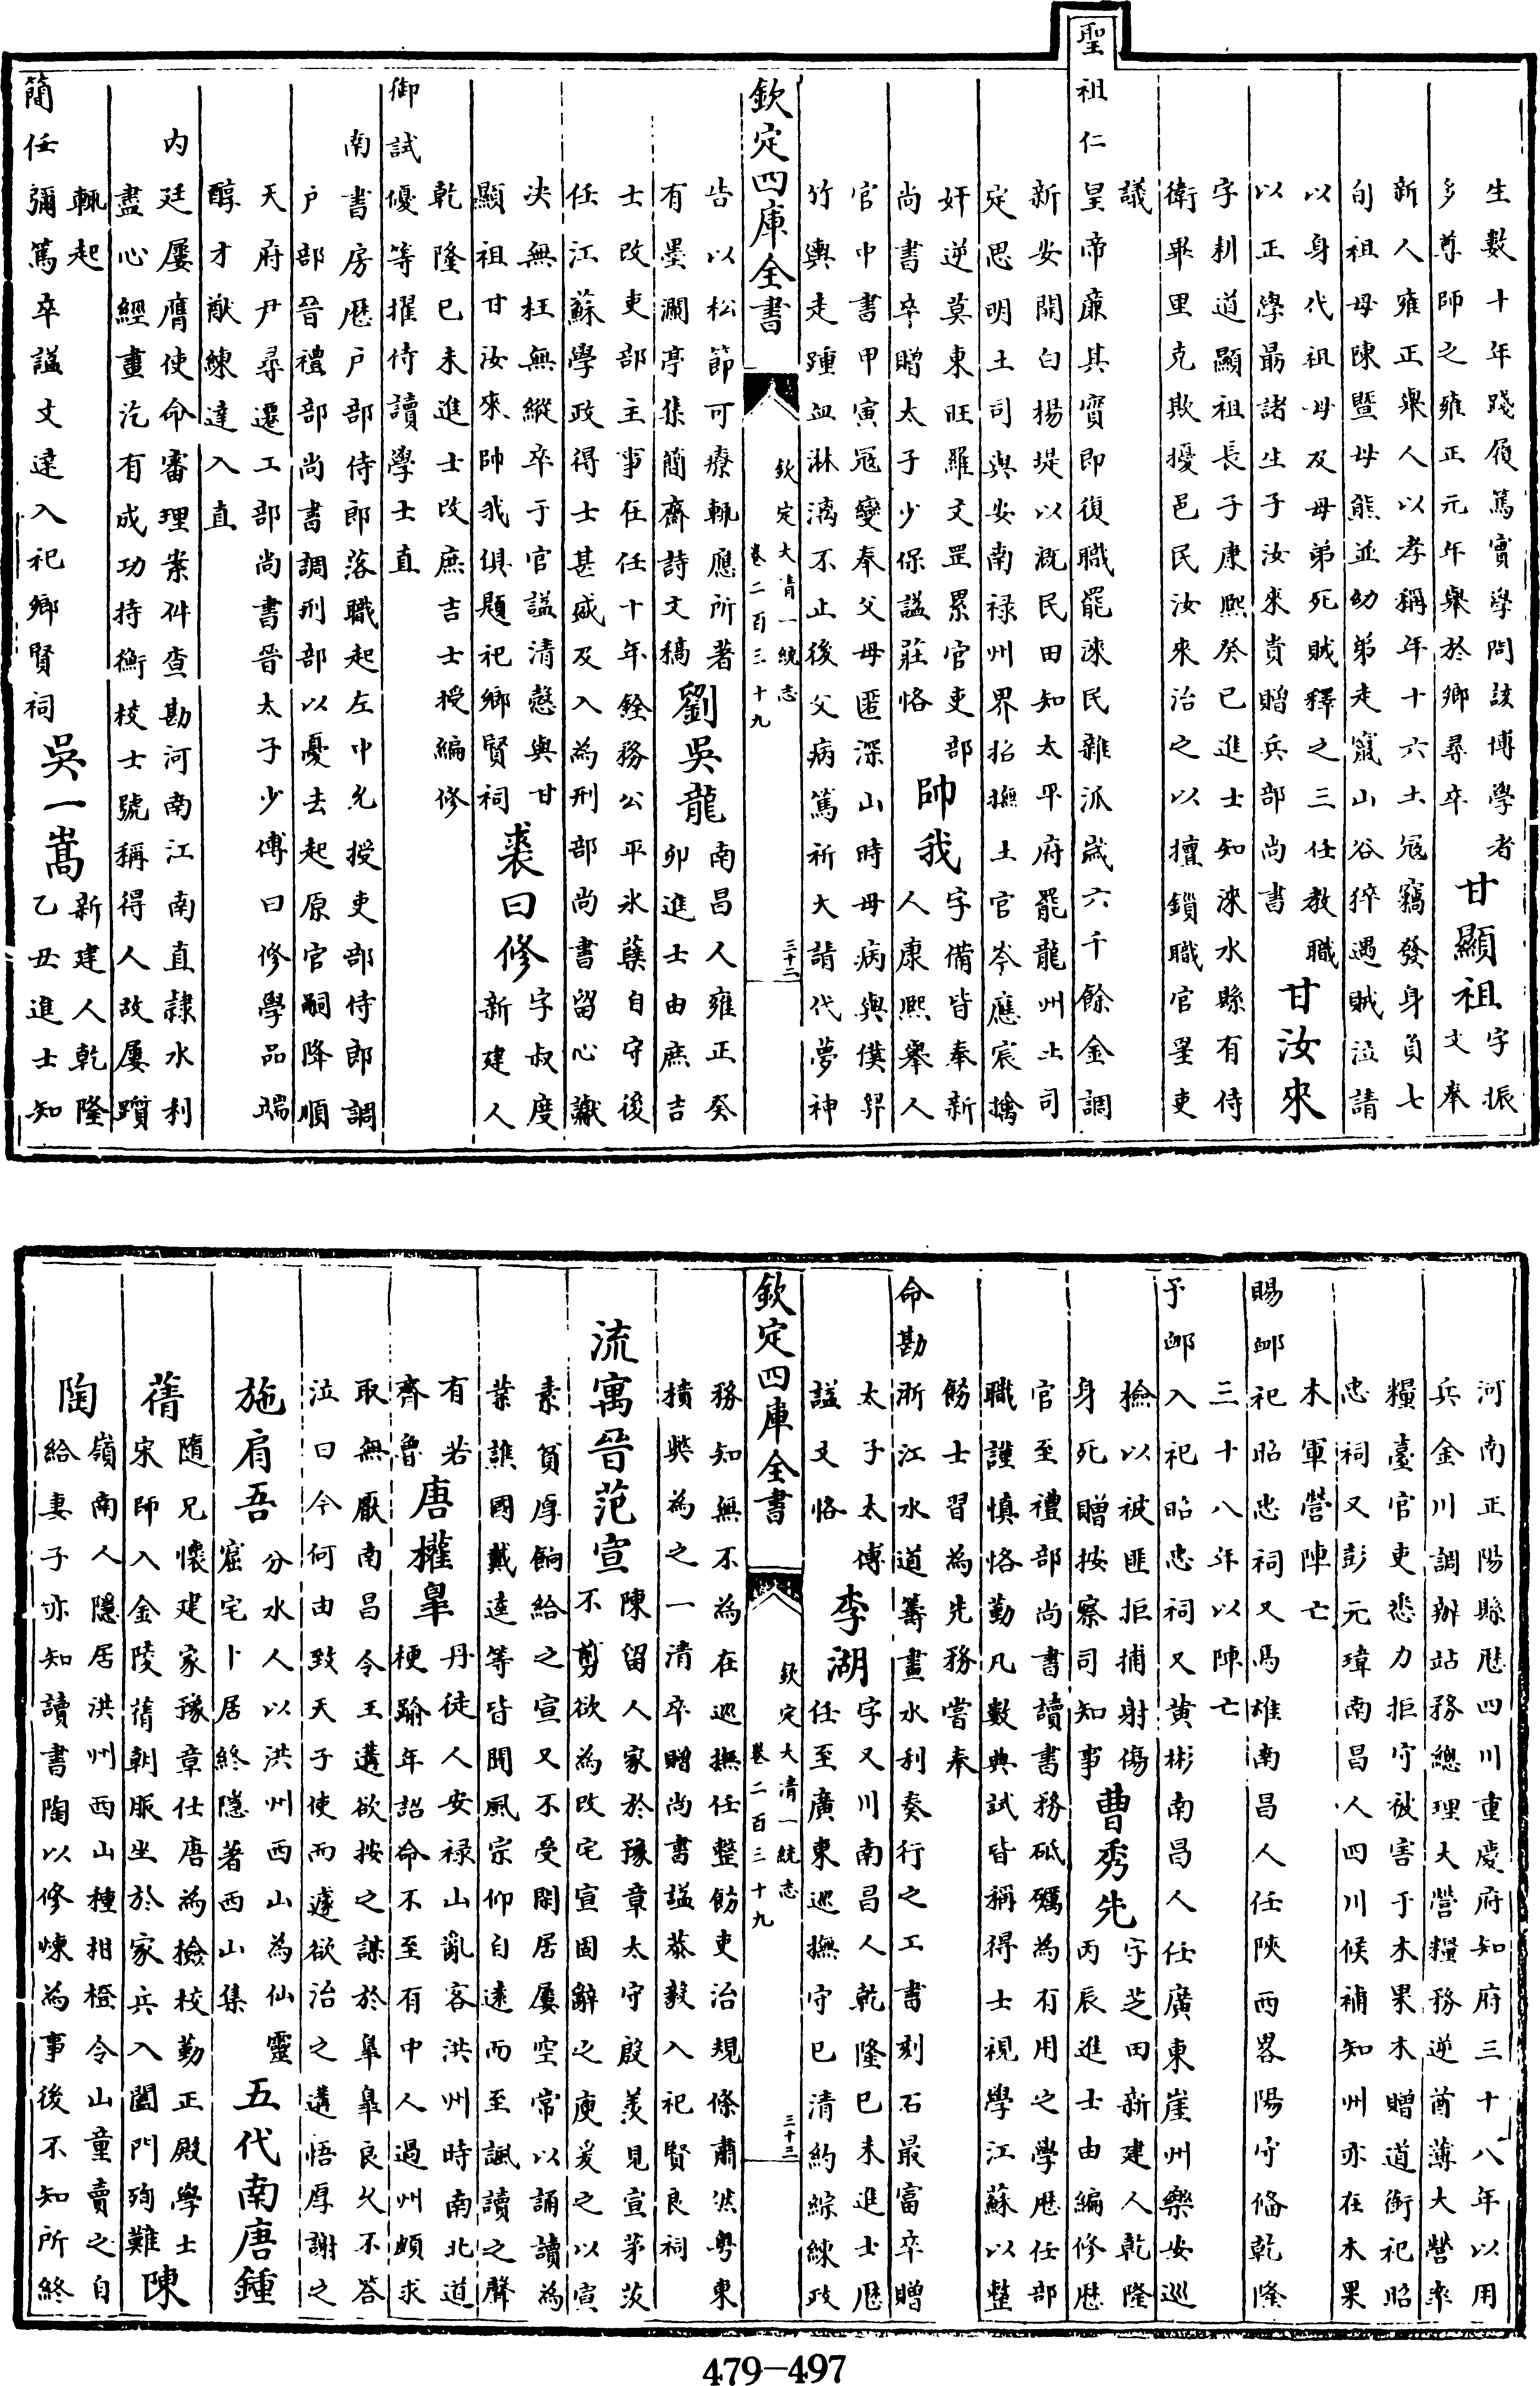 生數十年踐履篤實學問該博學者
多尊師之雍正元年舉於鄉尋卒
甘顯祖
字振
文奉
新人雍正舉人以孝稱年十六土寇竊發身負七
旬祖母陳暨母熊並幼弟走竄山谷猝遇賊泣請
以身代祖母及母弟死賊釋之三仕教職
以正學勗諸生子汝來貴贈兵部尚書
甘汝來
字耕道顯祖長子康熙癸巳進士知淶水縣有侍
衛畢里克欺擾邑民汝來治之以擅鎖職官罣吏
議
聖祖仁皇帝廉其實即復職罷淶民雜派歲六千餘金調
新安開白楊堤以溉民田知太平府罷龍州土司
定思明土司與安南祿州界招撫土官岑應宸擒
奸逆莫東旺羅文罡累官吏部
尚書卒贈太子少保諡莊恪
帥我
字備皆奉新
人康熙舉人
官中書甲寅寇變奉父母匿深山時母病與僕舁
竹輿走踵血淋漓不止後父病篤祈大請代夢神
欽定四庫全書
欽定大清一統志
卷二百三十九
三十二
告以松節可療輒應所著
有墨瀾亭集簡齋詩文稿
劉吳龍
南昌人雍正癸
卯進士由庶吉
士改吏部主事在任十年銓務公平氷蘗自守後
任江蘇學政得士甚盛及入為刑部尚書留心讞
决無枉無縱卒于官諡清慤與甘
顯祖甘汝來帥我俱題祀鄉賢祠
裘曰修
字叔度
新建人
乾隆己未進士改庶吉士授編修
御試優等擢侍讀學士直
南書房歷户部侍郎落職起左中允授吏部侍郎調
户部晉禮部尚書調刑部以憂去起原官嗣降順
天府尹尋遷工部尚書晉太子少傅曰修學品端
醇才猷練達入直
内廷屢膺使命審理案件查勘河南江南直隸水利
盡心經畫汔有成功持衡校士號稱得人故屢躓
輒起
簡任彌篤卒諡文達入祀鄉賢祠
吳一嵩
新建人乾隆
乙丑進士知
河南正陽縣歷四川重慶府知府三十八年以用
兵金川調辦站務總理大營糧務逆酋薄大營率
糧臺官吏悉力拒守被害于木果木贈道銜祀昭
忠祠又彭元瑋南昌人四川候補知州亦在木果
木軍營陣亡
賜卹祀昭忠祠又馬雄南昌人任陝西畧陽守備乾隆
三十八年以陣亡
予卹入祀昭忠祠又黄彬南昌人任廣東崖州樂安巡
檢以被匪拒捕射傷
身死贈按察司知事
曹秀先
字芝田新建人乾隆
丙辰進士由編修歷
官至禮部尚書讀書務砥礪為有用之學歷任部
職謹慎恪勤凡數典試皆稱得士視學江蘇以整
飭士習為先務嘗奉
命勘浙江水道籌畫水利奏行之工書刻石最富卒贈
太子太傅
諡文恪
李湖
字又川南昌人乾隆己未進士歷
任至廣東巡撫守已清約綜練政
欽定四庫全書
欽定大清一統志
卷二百三十九
三十三
務知無不為在巡撫任整飭吏治規條肅然粤東
積獘為之一清卒贈尚書諡恭毅入祀賢良祠
流寓
晉范宣
陳留人家於豫章太守殷羨見宣茅茨
不剪欲為改宅宣固辭之庾爰之以宣
素貧厚餉給之宣又不受閑居屢空常以誦讀為
業譙國戴逵等皆聞風宗仰自遠而至諷讀之聲
有若
齊魯
唐權皐
丹徒人安禄山亂客洪州時南北道
梗踰年詔命不至有中人過州頗求
取無厭南昌令王遘欲按之謀於皐皐良久不答
泣曰今何由致天子使而遽欲治之遘悟厚謝之
施肩吾
分水人以洪州西山為仙靈
窟宅卜居終隱著西山集
五代南唐鍾
蒨
隨兄懷建家豫章仕唐為檢校勤正殿學士
宋師入金陵蒨朝服坐於家兵入闔門殉難
陳
陶
嶺南人隱居洪州西山種柑橙令山童賣之自
給妻子亦知讀書陶以修煉為事後不知所終
479-497